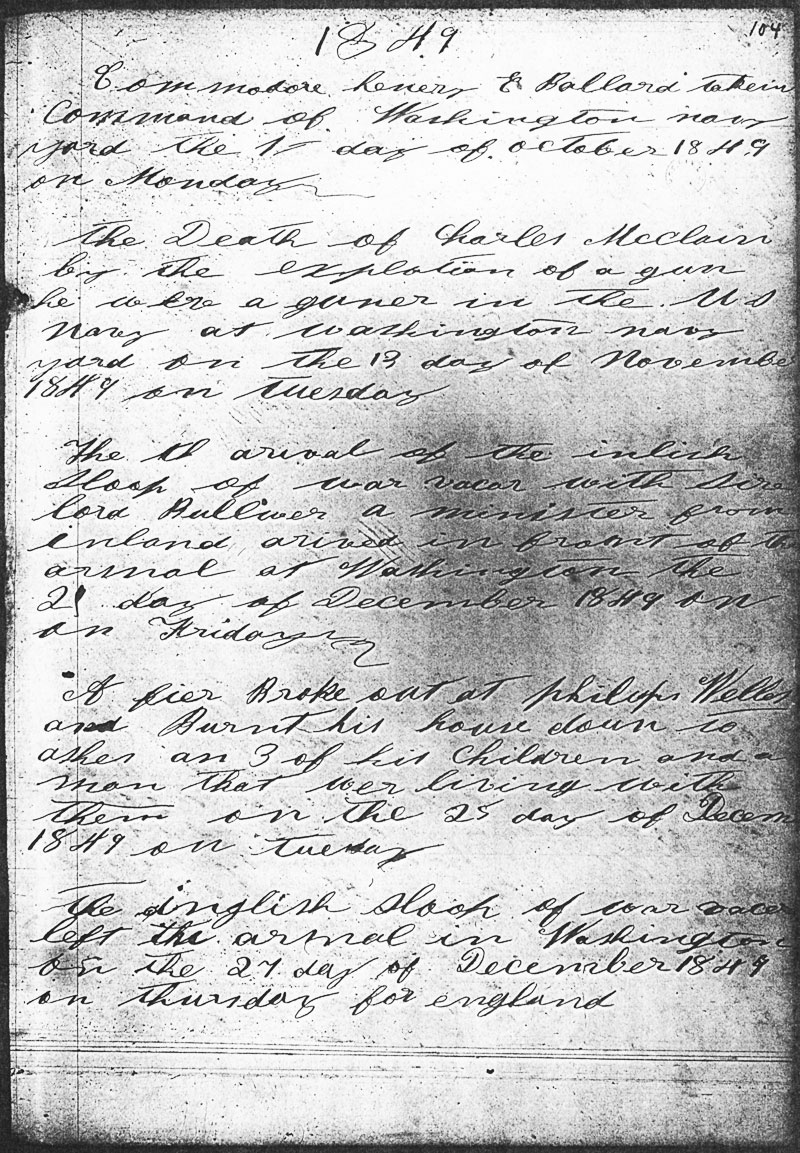 104
1849
Commodore henery E Ballard taken
Command of Washington navy
yard the 1st day of october 1849
on Monday
the Death of Charles McClain
by the explotion of a gun
he were a guner in the U S
Navy at washington navy
yard on the 13 day of Novembe
1849 on tuesday
The arival of the inlish
Sloop of war vacar with Sire
lord Bulliver a minister from
inland arived in fraunt of the
armal at Washington the
21 day of December 1849 on
on Friday
A fier Broke out at philips
and Burnt his house down to
ashes an 3 of his Children and a
man that wer living with
them on the 25 day of Decem
1849 on tuesday
the inglish sloop of war vacer
left the armal in Washington
on the 27 day of December 1849
on thursday for england